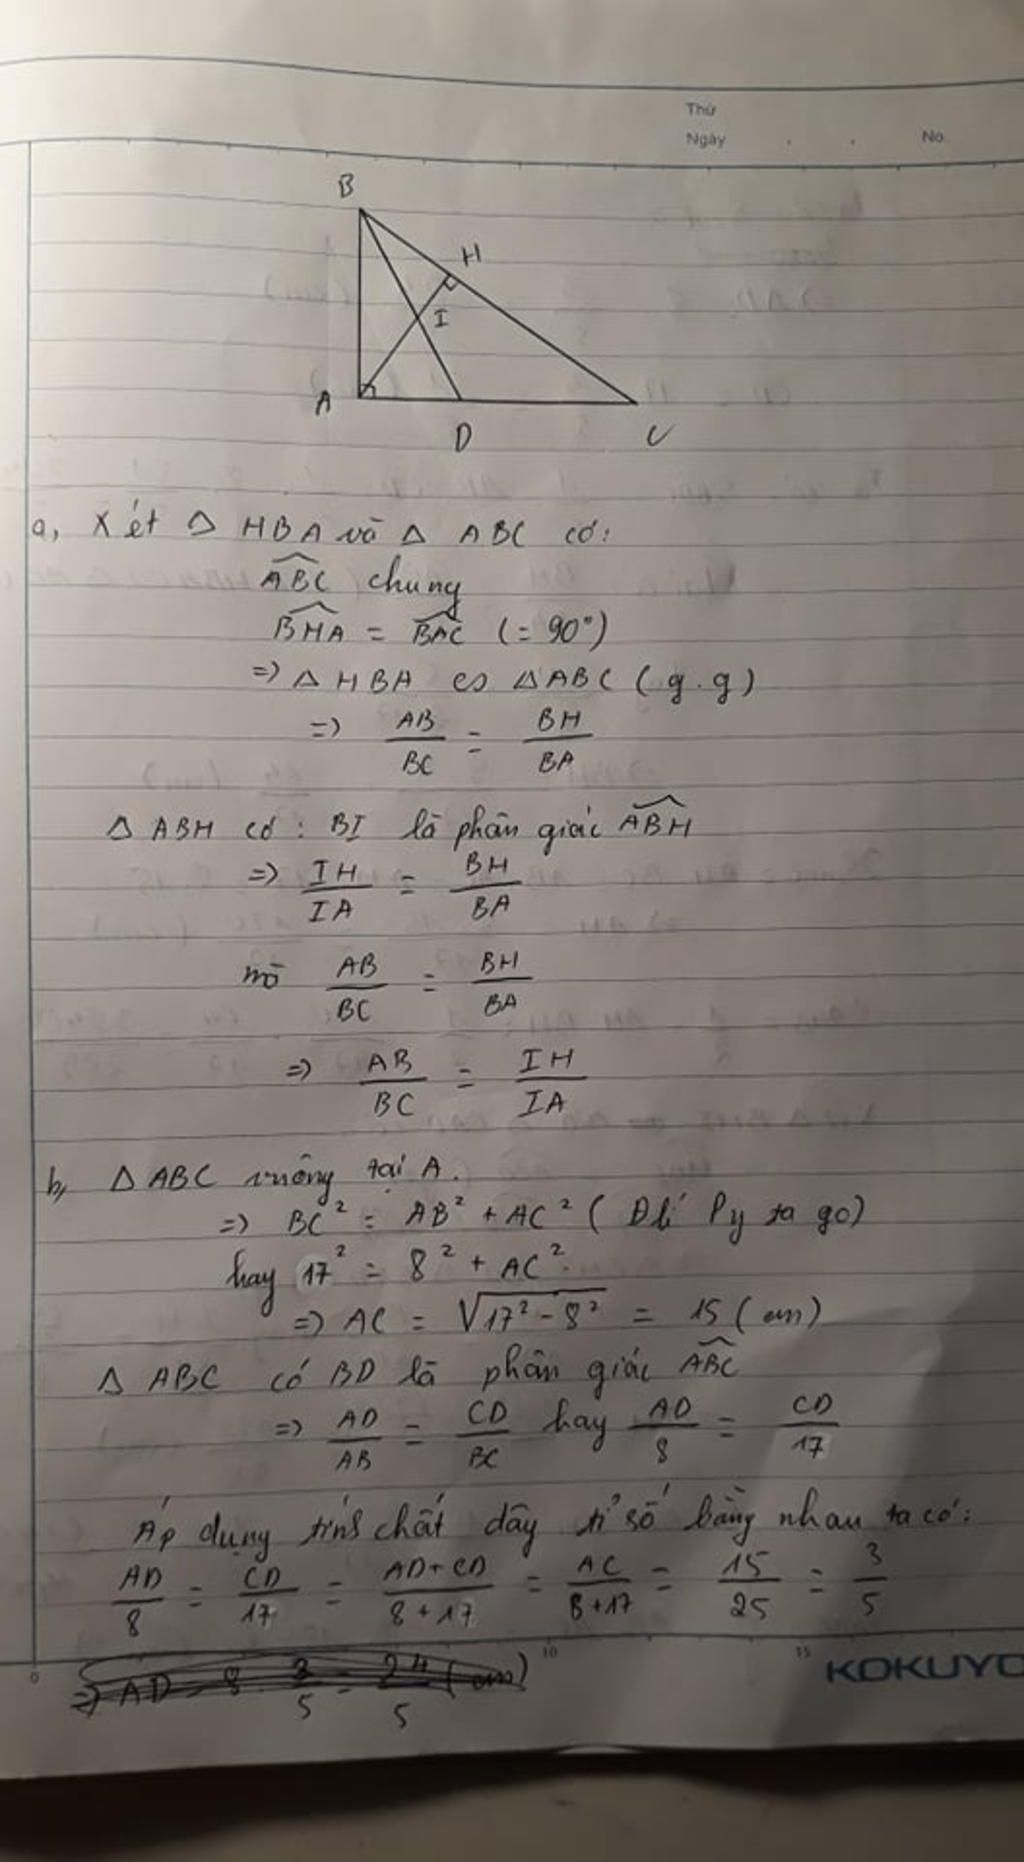 Thứ
Ngày . . No.
B
H
I
A
D
C
a, Xét △ HBA và △ ABC có:
$\widehat{ABC}$ chung
$\widehat{BHA}$ = $\widehat{BAC}$ (= 90°)
=> △ HBA ∽ △ABC (g.g)
=> AB/BC = BH/BA
△ ABH có: BI là phân giác $\widehat{ABH}$
=> IH/IA = BH/BA
mà AB/BC = BH/BA
=> AB/BC = IH/IA
b, △ ABC vuông tại A.
=> BC² = AB² + AC² (Đlí Py ta go)
hay 17² = 8² + AC²
=> AC = √(17² - 8²) = 15 (cm)
△ ABC có BD là phân giác $\widehat{ABC}$
=> AD/AB = CD/BC hay AD/8 = CD/17
Áp dụng tính chất dãy tỉ số bằng nhau ta có:
AD/8 = CD/17 = AD+CD/8+17 = AC/8+17 = 15/25 = 3/5
=> AD = 8 . 3/5 = 24/5 (cm)
0 10 15 KOKUYO